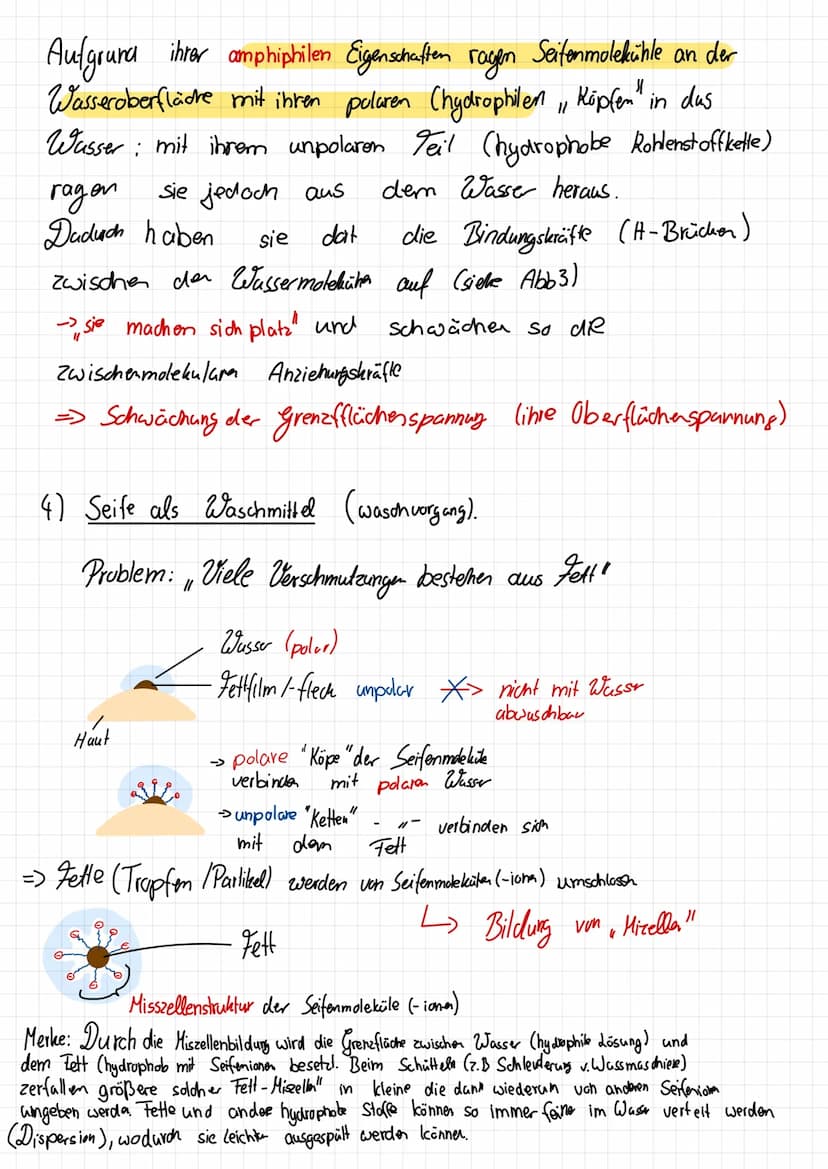 Aufgrund ihrer amphiphilen Eigenschaften ragen Seifenmolekühle an der
Wasseroberfläche mit ihren polaren (hydrophilen „Köpfen" in das
Wasser ; mit ihrem unpolaren Teil (hydrophobe Kohlenstoffkette)
ragen sie jedoch aus dem Wasser heraus.
Daduch haben sie dort die Bindungskräfte (H-Brücken)
zwischen den Wassermolekühn auf (siehe Abb3)
-> „sie machen sich platz" und schwächen so die
zwischenmolekularen Anziehungskräfte
=> Schwächung der Grenzfflächenspannung (ihre Oberflächenspannung)
4) Seife als Waschmittel (waschvorgang).
Problem: „Viele Verschmutzungen bestehen aus Fett"
Wasser (polar)
Fettfilm /-fleck unpolar -> nicht mit Wasser
abwaschbar
Haut
-> polare "Köpe" der Seifenmoleküle
verbinden mit polaren Wasser
-> unpolare "Ketten" - „- verbinden sich
mit dem Fett
=> Fette (Tropfen /Partikel) werden von Seifenmoleküten (-ionen) umschlossen
↳ Bildung von „Mizellen"
Fett
Misszellenstruktur der Seifenmoleküle (-ionen)
Merke: Durch die Miszellenbildung wird die Grenzfläche zwischen Wasser (hydrophile Lösung) und
dem Fett (hydrophob mit Seifenionen besetzt. Beim Schütteln (z.B Schleuderung v. Wassmaschiene)
zerfallen größere solcher Fett-Miszellen" in kleine die dann wiederum von anderen Seifenionen
umgeben werden. Fette und andere hydrophobe Stoffe können so immer feiner im Wasser verteilt werden
(Dispersion), wodurch sie leichter ausgespült werden können.